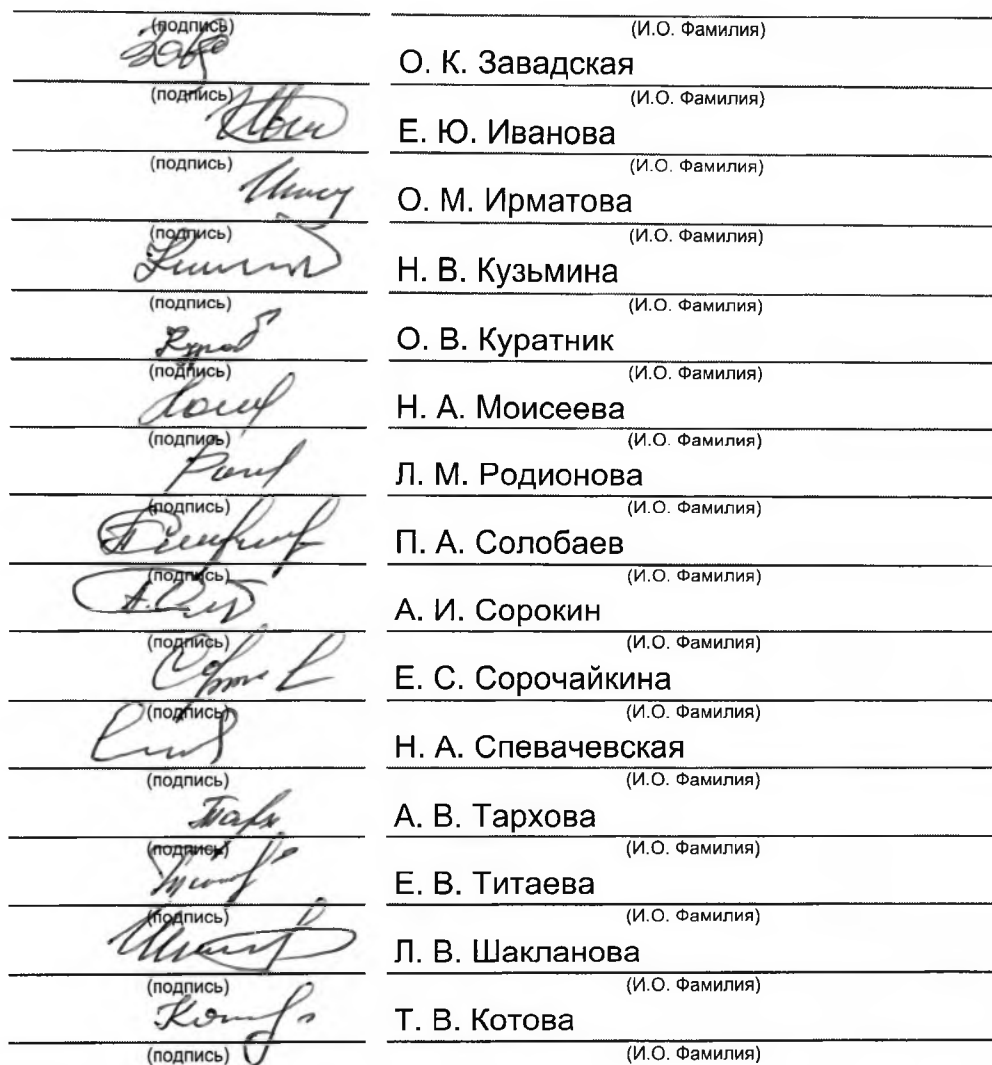 (подпись) (И.О. Фамилия)
О. К. Завадская
(подпись) (И.О. Фамилия)
Е. Ю. Иванова
(подпись) (И.О. Фамилия)
О. М. Ирматова
(подпись) (И.О. Фамилия)
Н. В. Кузьмина
(подпись) (И.О. Фамилия)
О. В. Куратник
(подпись) (И.О. Фамилия)
Н. А. Моисеева
(подпись) (И.О. Фамилия)
Л. М. Родионова
(подпись) (И.О. Фамилия)
П. А. Солобаев
(подпись) (И.О. Фамилия)
А. И. Сорокин
(подпись) (И.О. Фамилия)
Е. С. Сорочайкина
(подпись) (И.О. Фамилия)
Н. А. Спевачевская
(подпись) (И.О. Фамилия)
А. В. Тархова
(подпись) (И.О. Фамилия)
Е. В. Титаева
(подпись) (И.О. Фамилия)
Л. В. Шакланова
(подпись) (И.О. Фамилия)
Т. В. Котова
(подпись) (И.О. Фамилия)